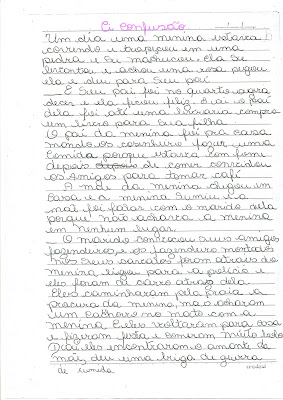 A confusão
Um dia uma menina estava
correndo e tropeçou em uma
pedra e se machucou. Ela se
levantou e achou uma rosa pegou
ela e deu para seu pai
E seu pai foi no quarto agra
decer e ela ficou feliz. E ai o pai
dela foi até uma livraria compro
um livro para sua filha
O pai da menina foi pra casa
mandou os cosinheiro fazer uma
comida porque estava com fome
depois de comer convidou
os amigos para tomar café
A mãe da menina chegou em
casa e a menina sumiu da
mãe foi falar com o marido dela
porque não achava a menina
em nenhum lugar.
O marido convocou seus amigos
fazendeiros e os fazendeiro montado
nos seus cavalos foram atraiz da
menina ligou para a policia e
eles foram de carro atraiz dela
Eles caminharam pela praia a
procura da menina, não acharam
um cachorro no mato com a
menina. E eles voltaram para casa
e fizeram festa e comeram muito bolo
Dai eles encontraram o amante da
mãe, deu uma briga de guerra
de comida